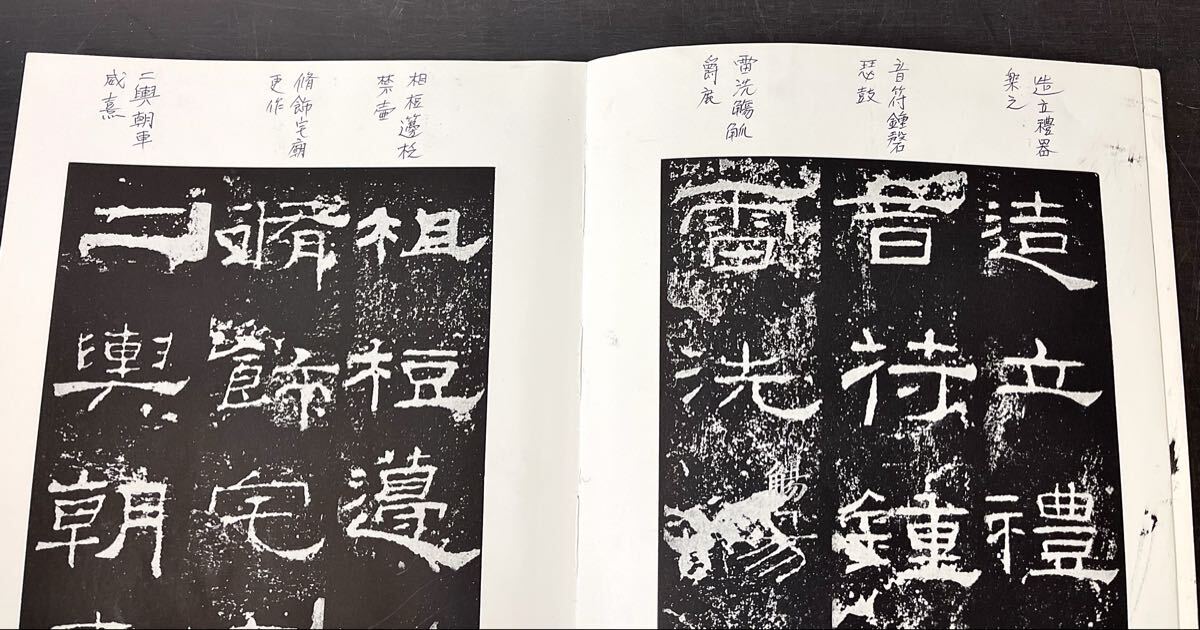 造立禮器
樂之
音符鍾磬
瑟鼓
雷洗觴觚
爵鹿
相桓籩柉
禁壺
脩飾宅廟
更作
二輿朝車
威熹
造立禮
音苻鍾
雷洗觴
觴
柤梪籩
脩飾宅
二輿朝